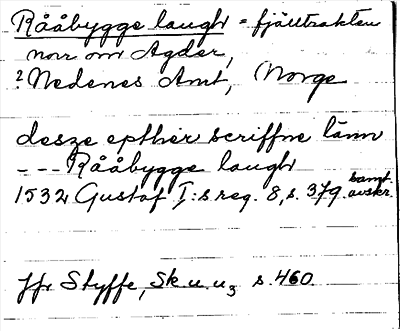 Rååbygge laugh = fjälltrakten
norr om Agder,
? Nedenes Amt, Norge
desze epther scriffne länn
--- Rååbygge laugh
1532 Gustaf I:s reg. 8, s. 379. samt. avskr.
Jfr Styffe, Sk. u. u₃ s. 460.